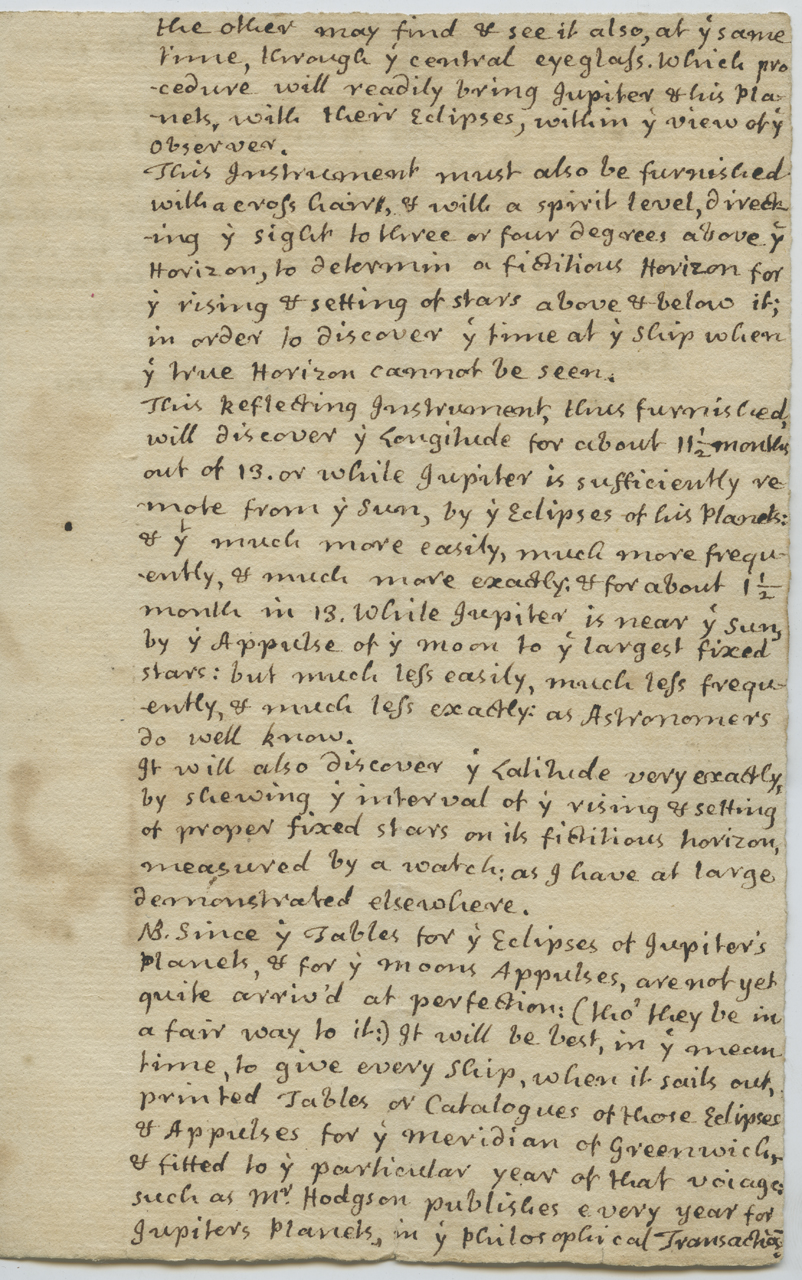 the other may find & see it also, at ẏ same
time, through ẏ central eyeglaſs. Which pro
-cedure will readily bring Jupiter & his Pla-
-nets, with their Eclipses, within ẏ view of ẏ
Observer.
This Instrument must also be furnished
with a croſs hairs, & with a spirit level, direct-
-ing ẏ sight to three or four degrees above ẏ
Horizon, to determin a fictitious Horizon for
ẏ rising & setting of stars above & below it;
in order to discover ẏ time at ẏ Ship when
ẏ true Horizon cannot be seen.
This Reflecting Instrument, thus furnished,
will discover ẏ Longitude for about 11½ months
out of 13. or while Jupiter is sufficiently re-
mote from ẏ Sun, by ẏ Eclipses of his Planets:
& yͭ much more easily, much more frequ-
-ently, & much more exactly: & for about 1½
month in 13. While Jupiter is near ẏ Sun,
by ẏ Appulse of ẏ moon to ẏ largest fixed
stars: but much leſs easily, much leſs frequ-
-ently, & much leſs exactly: as Astronomers
do well know.
It will also discover ẏ Latitude very exactly,
by shewing ẏ interval of ẏ rising & setting
of proper fixed stars on its fictitious horizon,
measured by a watch: as I have at large
demonstrated elsewhere.
NB. Since ẏ Tables for ẏ Eclipses of Jupiter's
Planets, & for ẏ moons Appulses, are not yet
quite arriv'd at perfection: (tho' they be in
a fair way to it:) It will be best, in ẏ mean
time, to give every Ship, when it sails out,
printed Tables or Catalogues of those Eclipses
& Appulses for ẏ meridian of Greenwich,
& fitted to ẏ particular year of that voiage:
such as Mr. Hodgson publishes every year for
Jupiters Planets, in ẏ Philosophical Transactiōs.